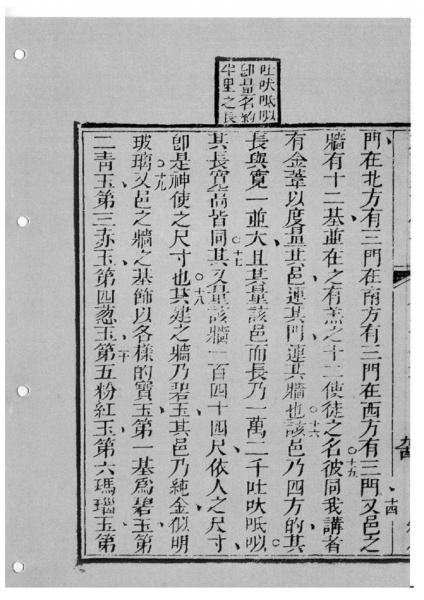 吐吠呧㕥
即量名約
半里之長
門在北方有三門在南方有三門在西方有三門十四又邑之
牆有十二基並在之有羔之十二使徒之名十五彼同我講者
有金葦以度量其邑連其門連其牆也十六該邑乃四方的其
長與寬一並大且其量該邑而長乃一萬二千吐吠呧㕥
其長寬高皆同十七其又量該牆一百四十四尺依人之尺寸
即是神使之尺寸也十八其建之牆乃碧玉其邑乃純金似明
玻璃十九又邑之牆之基飾以各樣的寶玉第一基為碧玉第
二青玉第三赤玉第四葱玉二十第五粉紅玉第六瑪瑙玉第